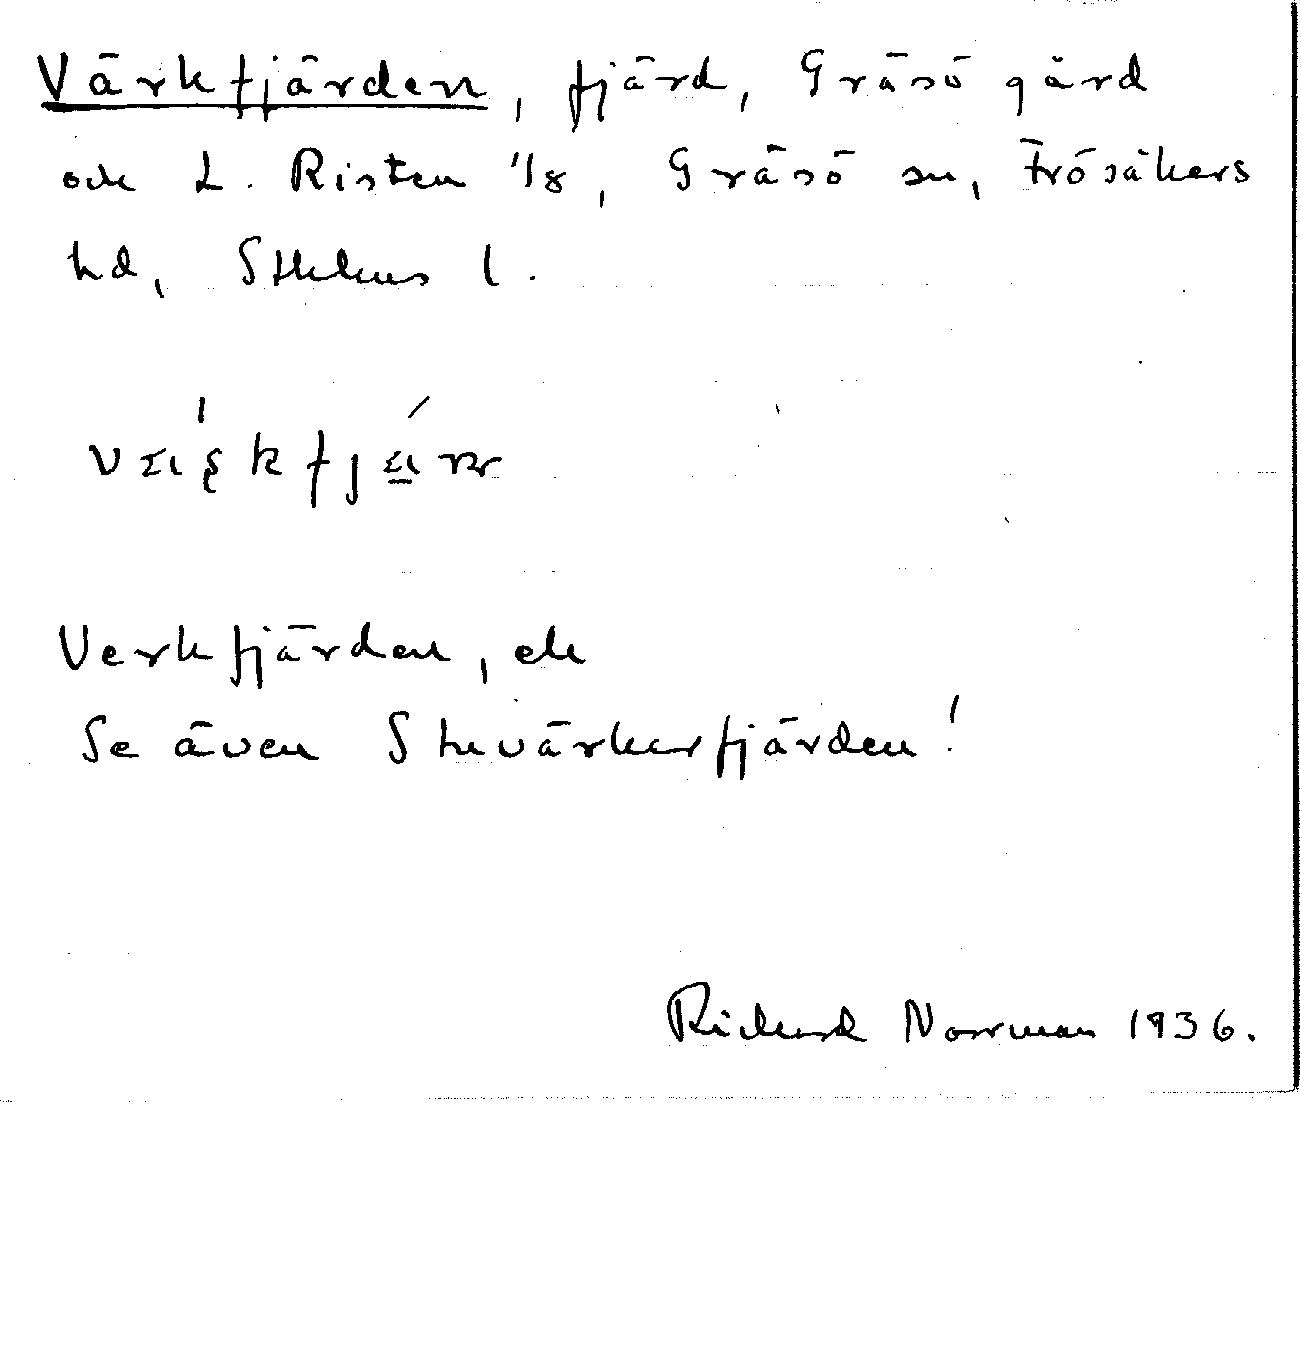 Värkfjärden, fjärd, Gräsö gård
och L. Risten 1/8, Gräsö sn, Frösåkers
hd, Sthlms l.
Verkfjärden, ek
Se även Skuvärkerfjärden!
Richard Norrman 1936.